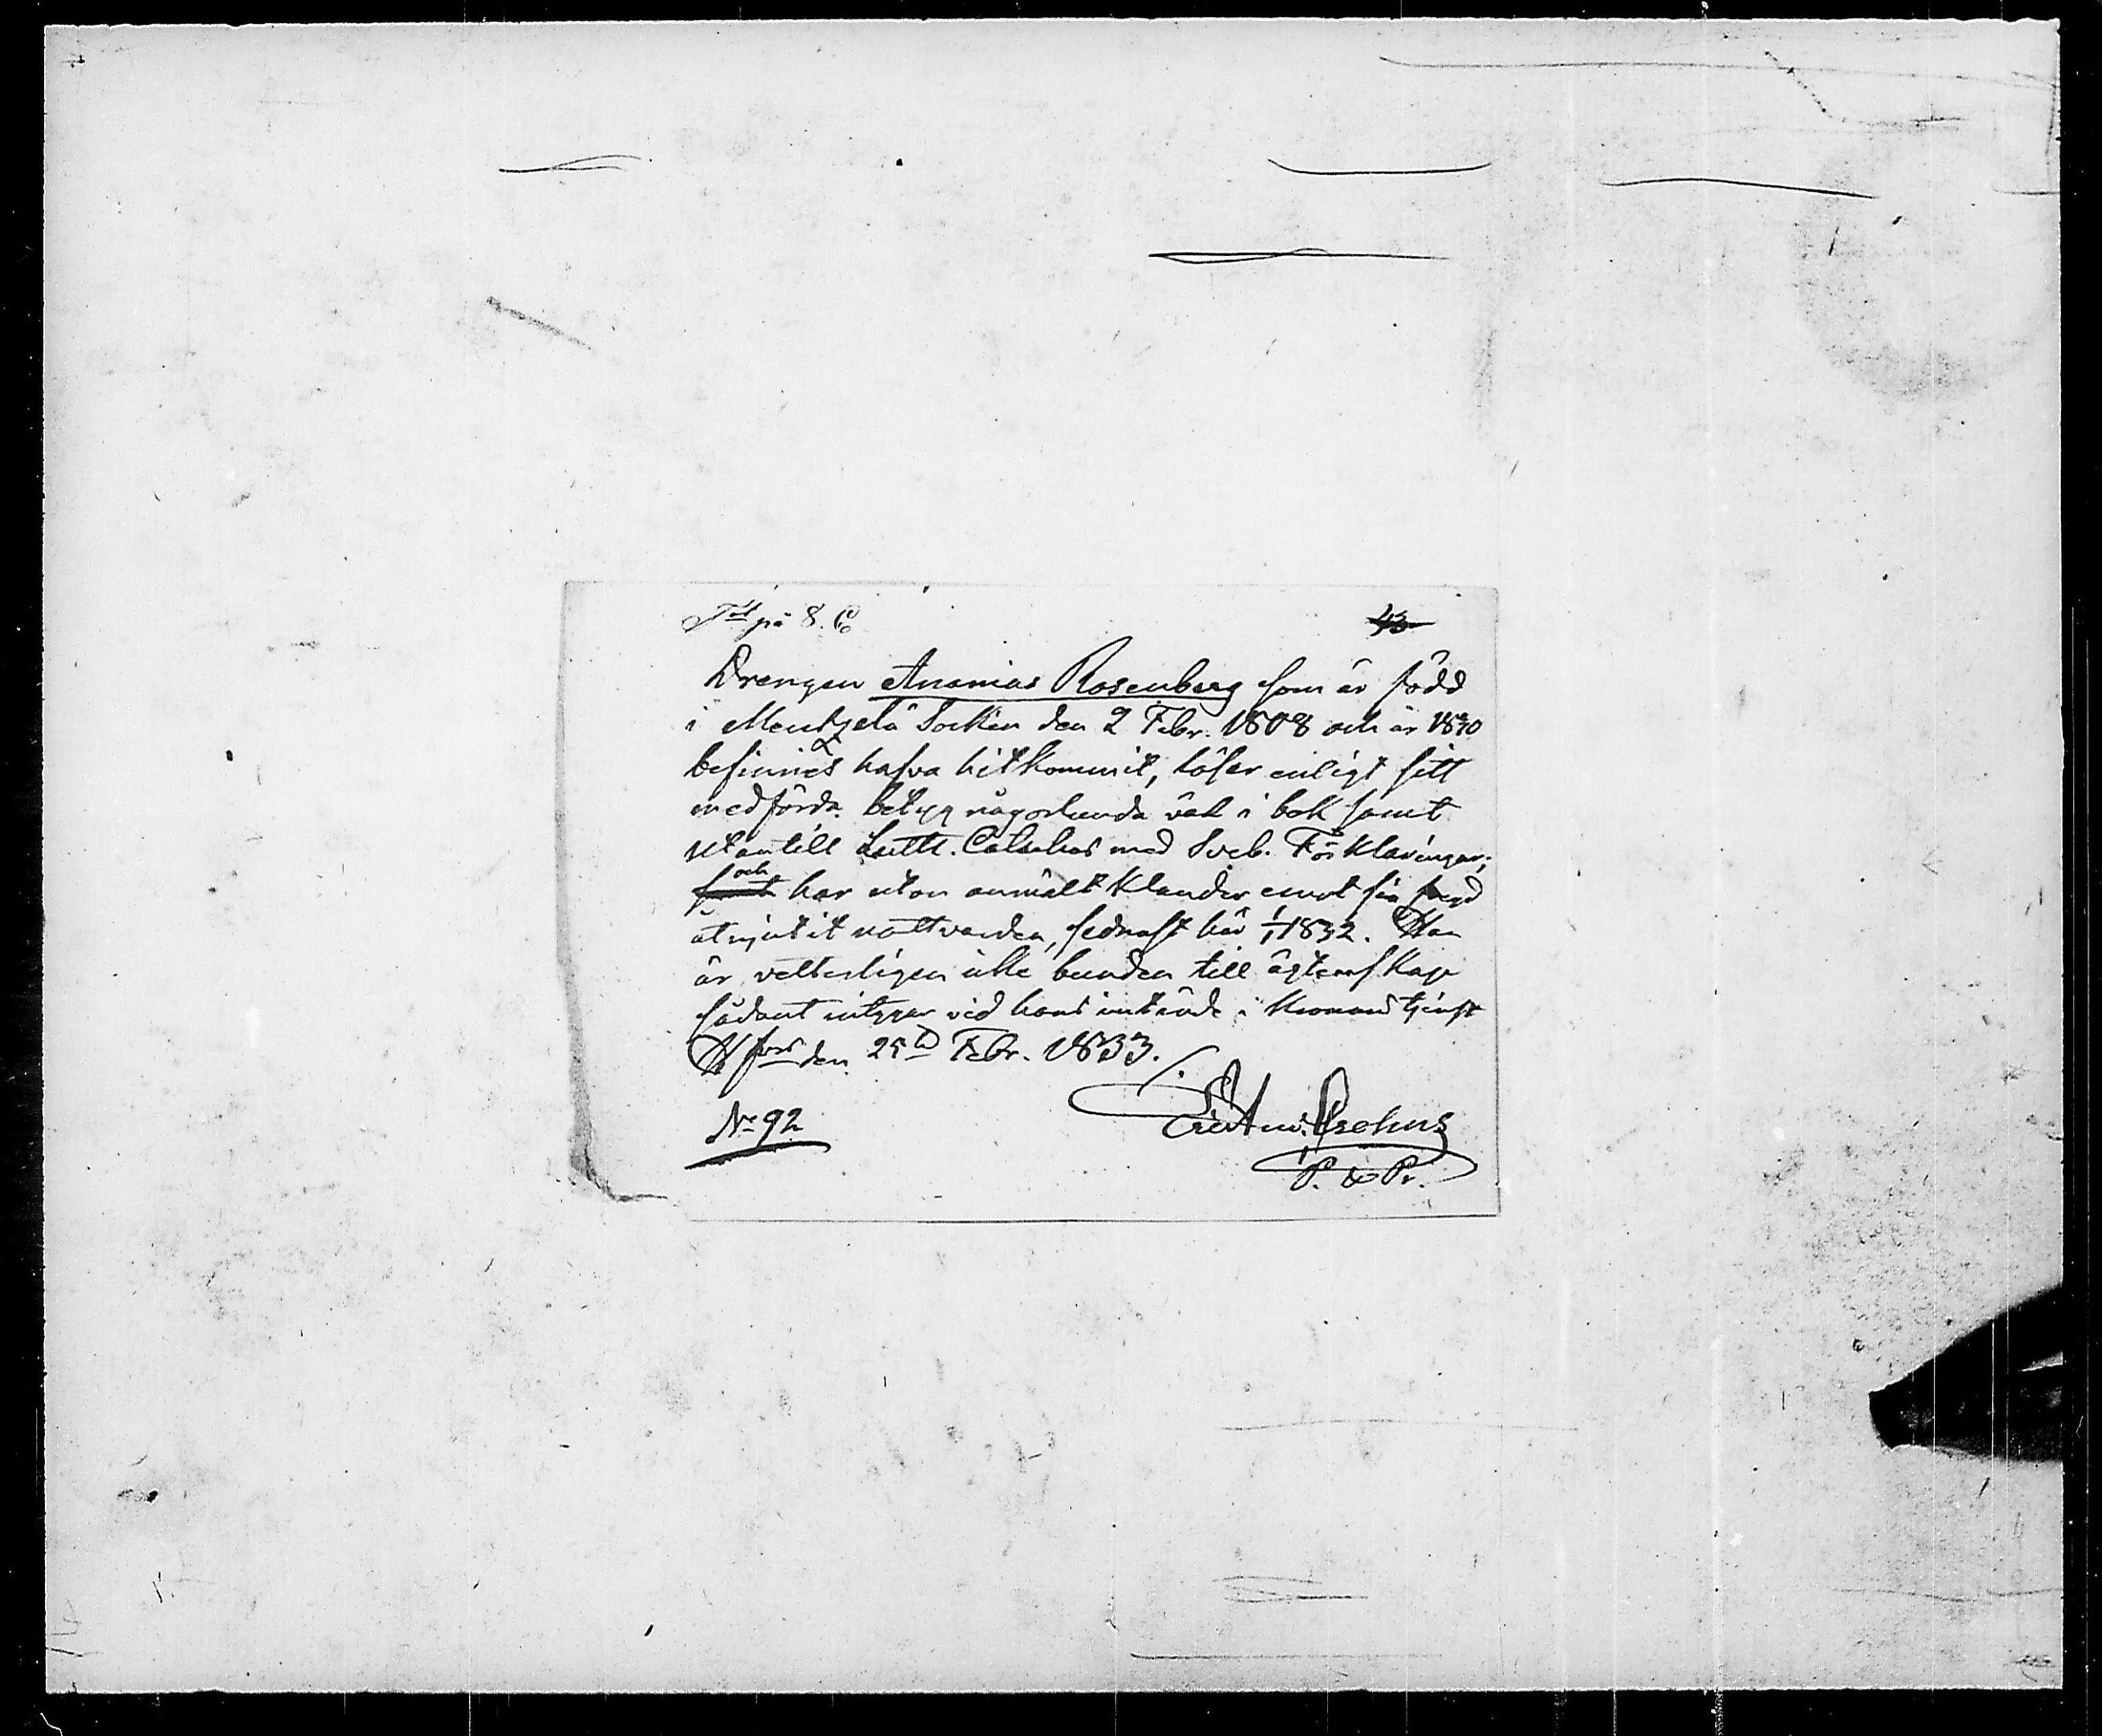 på 8. C
43
Drengen Ananias Rosenberg som är född
i Mentzelä Socken den 2 Febr. 1808 och år 1830
befinnes hafva hitkommit, läser enligt sitt
medförda betyg någorlunda väl i bok samt
utantill Luth. Cateches med Sveb. Förklaringar;
och har utan anmält klander emot sin fregd
åtnjutit nattvarden, sednast här 1/1 1832. Han
är vetterligen icke bunden till ägtenskap
sådant intygar vid hans inträde i Kronans tjenst
H fors den 25 Febr. 1833.
No 92
P. & Pr.